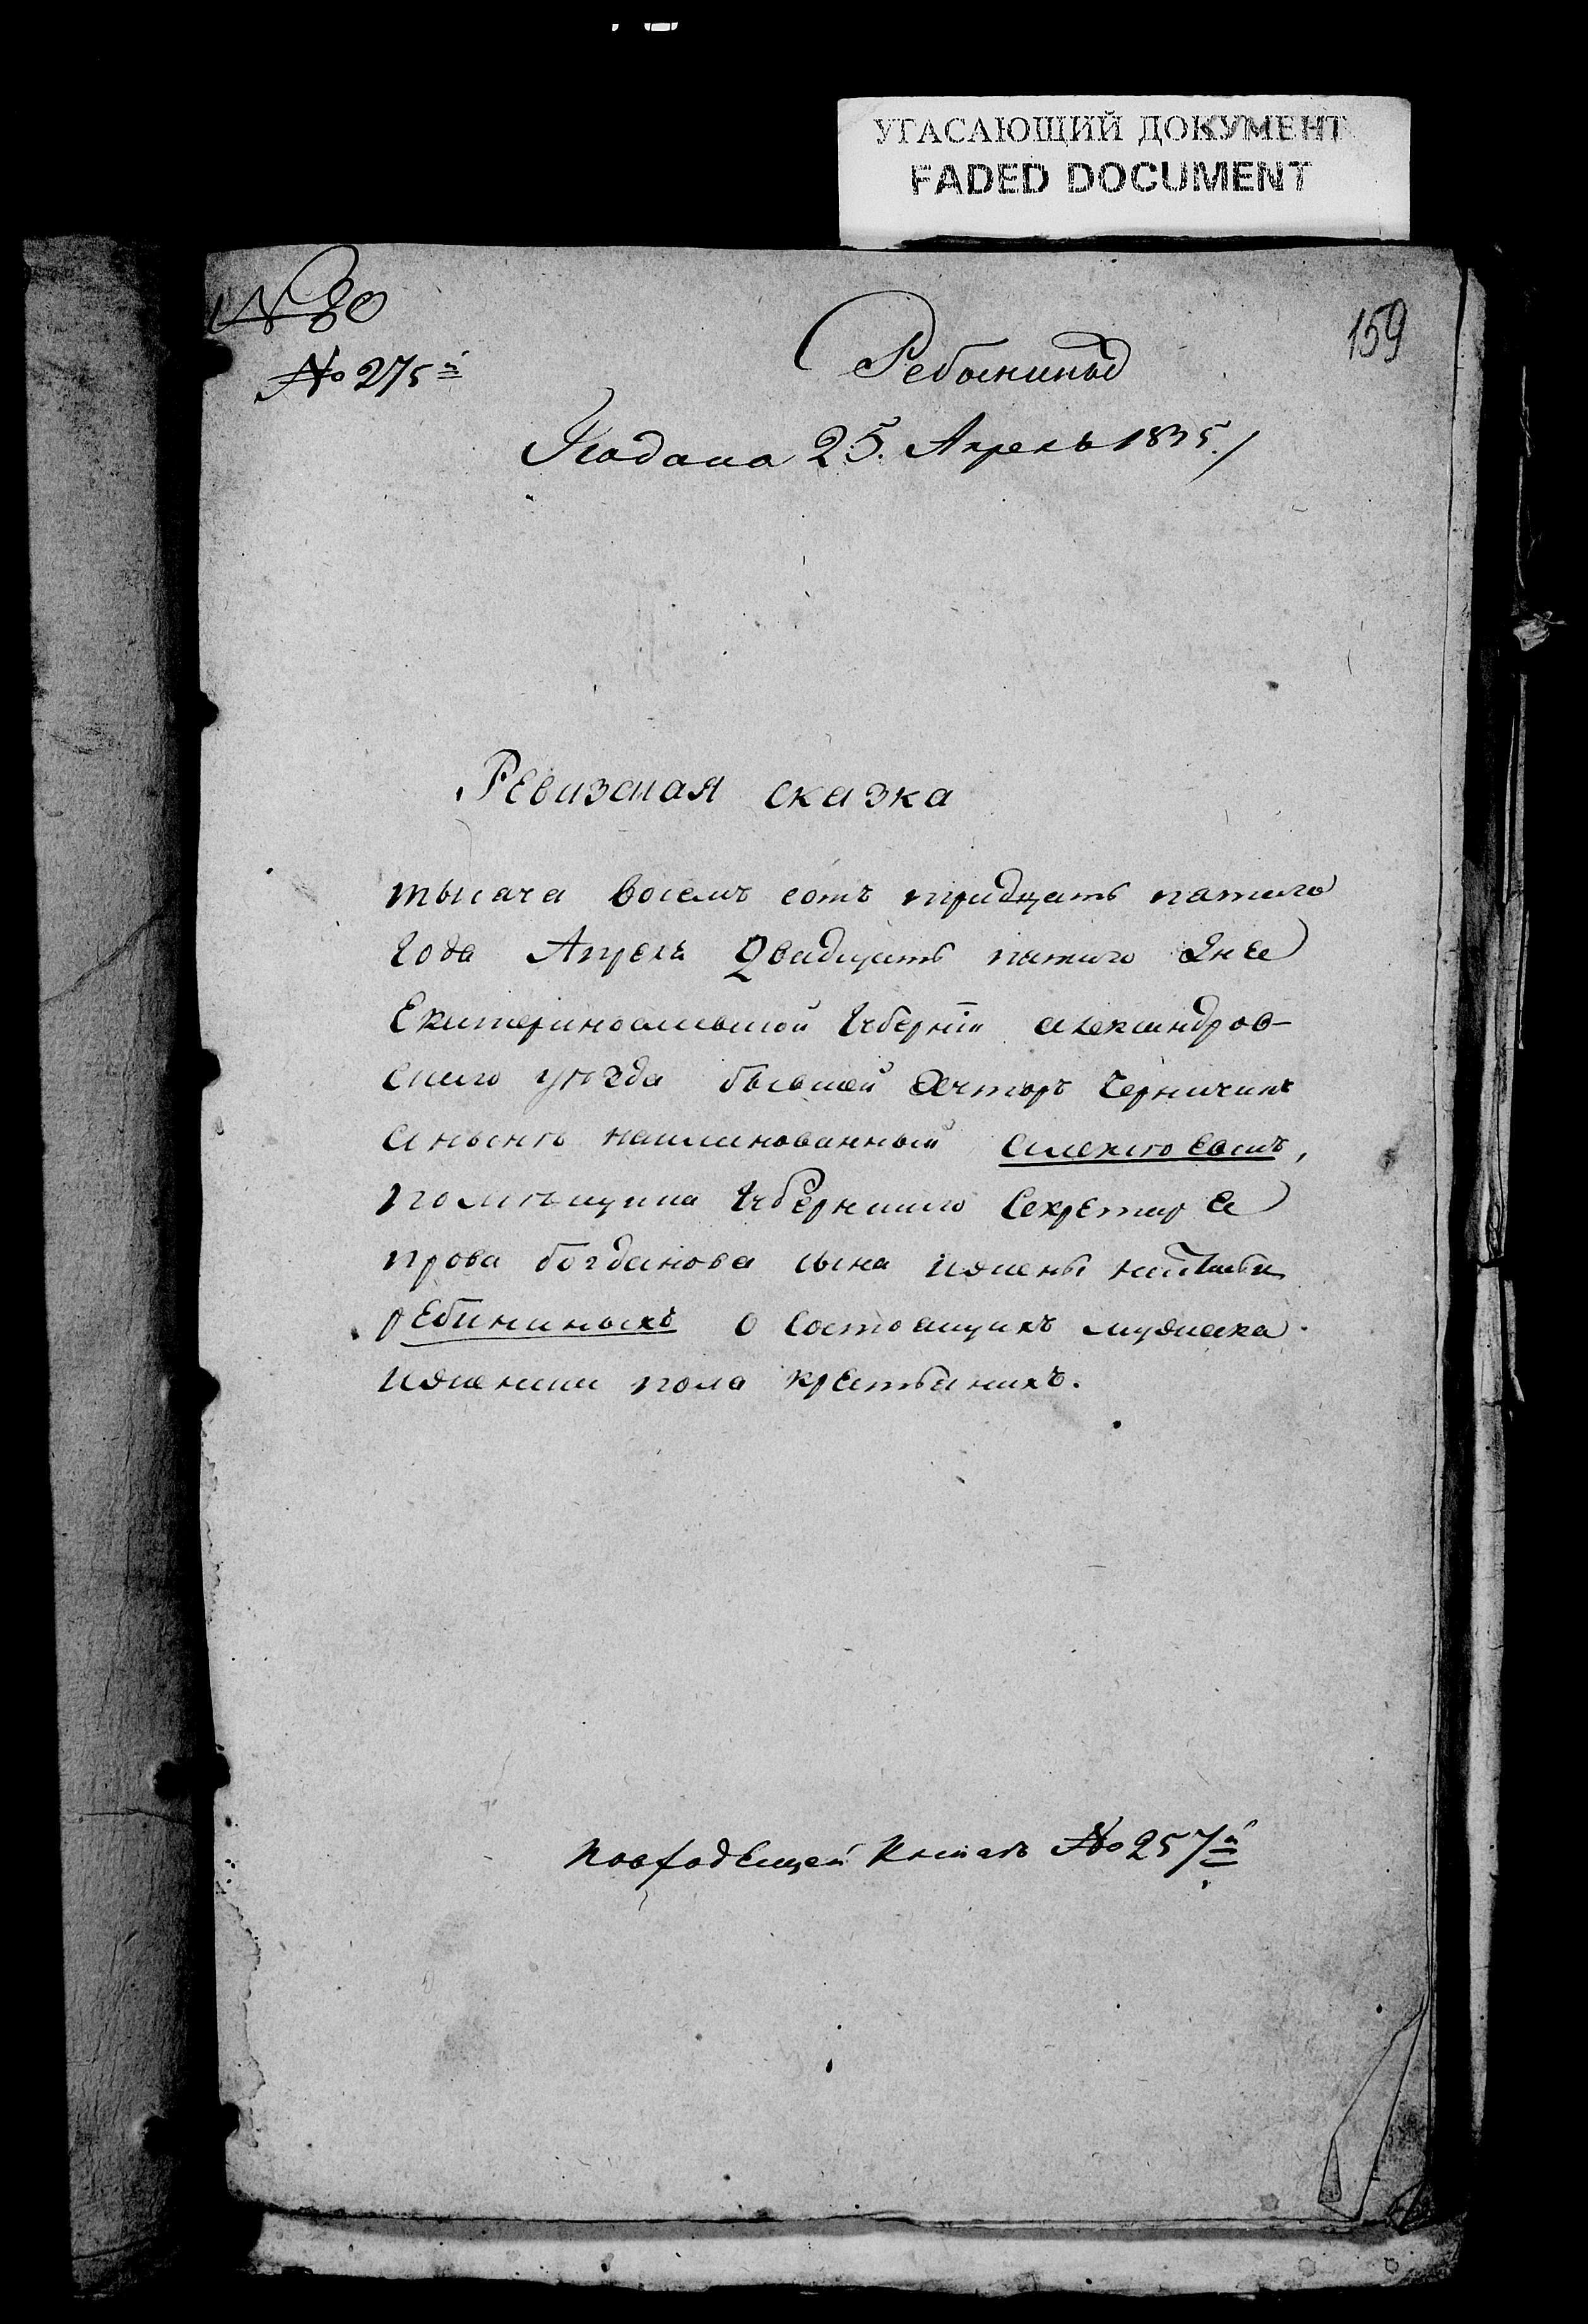 УГАСАЮЩИЙ ДОКУМЕНТ
FADED DOCUMENT
№ 80
159
№ 275й
Подана 25. Апреля 1835./
Ревизская сказка
тысяча восемъ сотъ тридцать пятого
года Апреля Двадцать пятого дня
Екатеринославской Губернїи александров-
ского уезда бывшей хуторъ
а нынѣ наименованный алексѣевка,
помѣщика Губернского Секретаря
прова богданова сына жены
ребининыхъ о состоящихъ мужеска
и женска пола крестьянахъ.
повходящей книгѣ № 257й